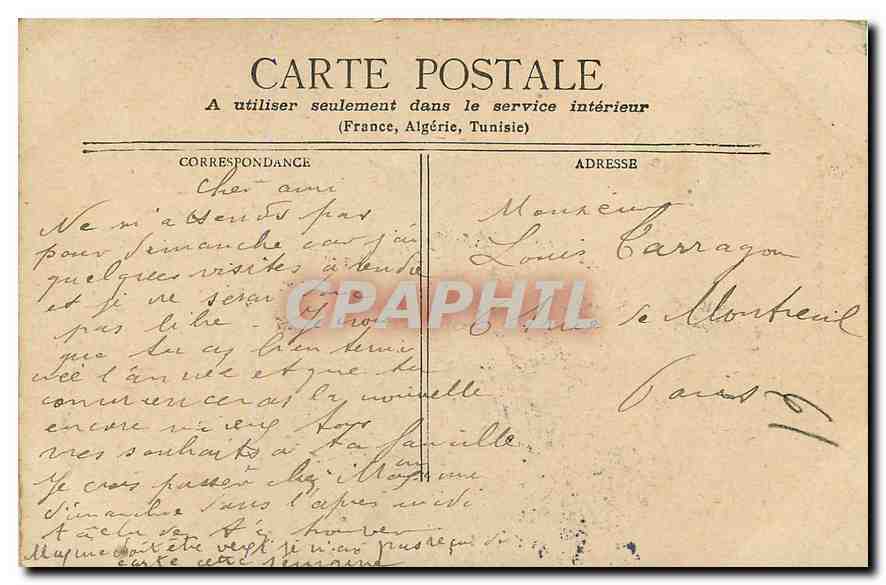 CARTE POSTALE
A utiliser seulement dans le service intérieur
(France, Algérie, Tunisie)
CORRESPONDANCE
cher ami
Ne m'attends pas
pour dimanche car j'ai
quelques visites à rendre
et je ne serai
pas libre
que tu as bien termi
née l'année et que tu
commenceras la nouvelle
encore mieux
mes souhaits à ta famille
Je crois passer chez
dimanche dans l'après midi
tâche de t'y trouver
carte cette semaine
ADRESSE
Monsieur
Louis Tarragon
rue de Montreuil
Paris
CPAPHIL